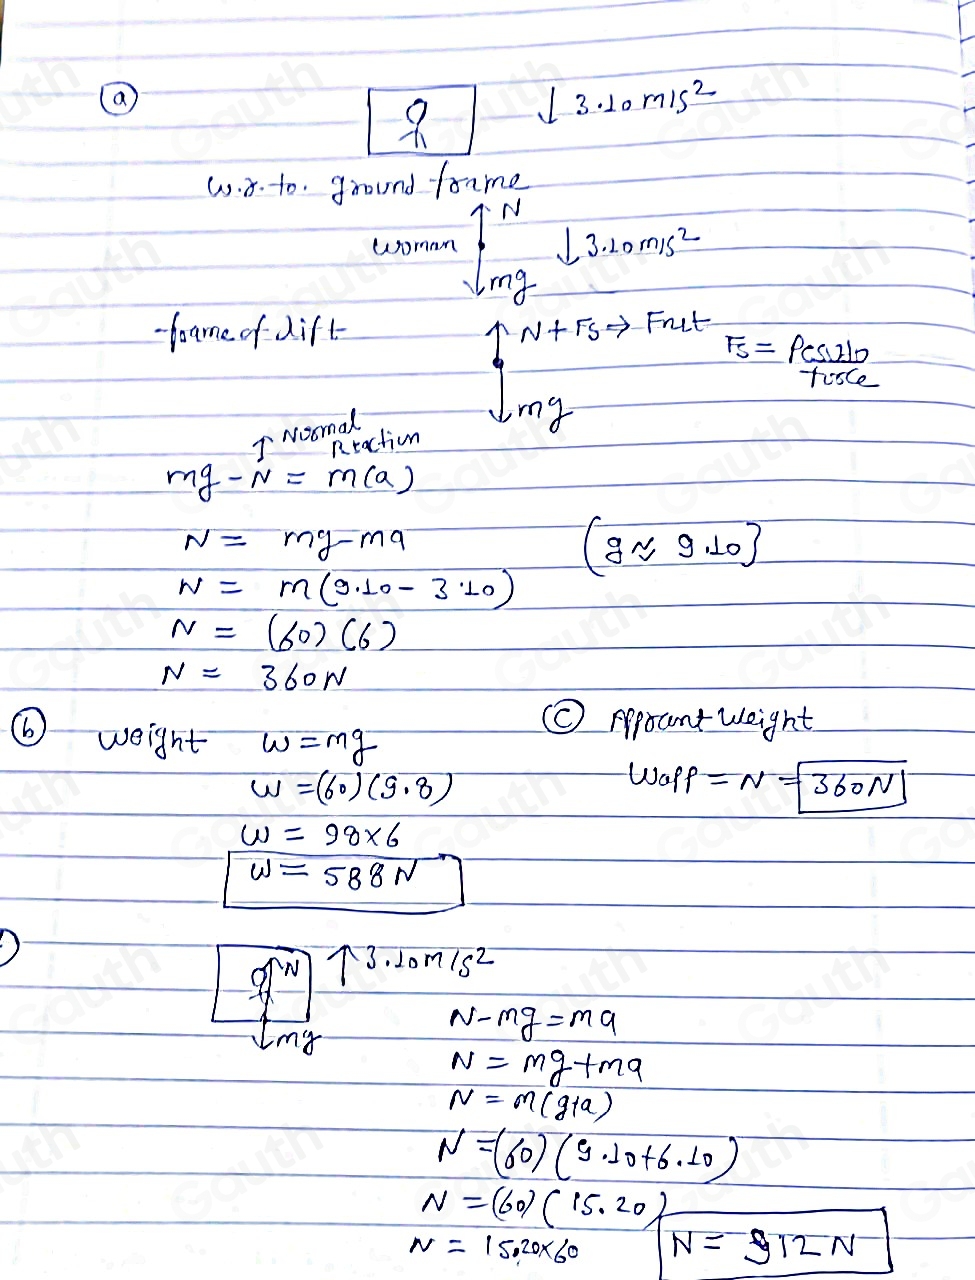 (a) ↓ 3.10 m/s²
w.r.to. ground frame
↑ N
woman ↓ 3.10 m/s²
↓ mg
frame of lift ↑ N + Fs ⇒ Fnet
Fs = Pesudo force
↓ mg
↑ Normal Reaction
mg - N = m(a)
N = mg - ma (g ≈ 9.10)
N = m(9.10 - 3.10)
N = (60)(6)
N = 360N
(b) weight w = mg
w = (60)(9.8)
w = 98×6
w = 588N
(c) Apprant weight
Wapp = N = 360N
N ↑ 3.10 m/s²
↓ mg
N - mg = ma
N = mg + ma
N = m(g+a)
N = (60)(9.10+6.10)
N = (60)(15.20)
N = 15.20×60 N = 912 N
Gauth